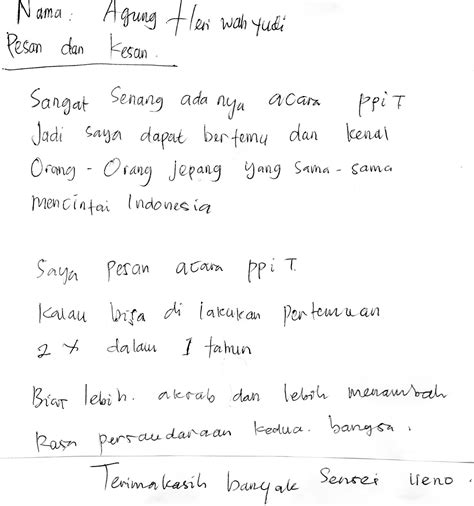 Nama : Agung Heri wahyudi
Pesan dan Kesan.
Sangat Senang ada nya acara ppi T
Jadi saya dapat bertemu dan kenal
Orang - Orang jepang yang sama - sama
mencintai Indonesia
Saya pesan acara ppi T.
Kalau bisa di lakukan pertemuan
2 x dalam 1 tahun
Biar lebih. akrab dan lebih menambah
Rasa persaudaraan kedua. bangsa.
Terimakasih banyak Sensei Ueno.